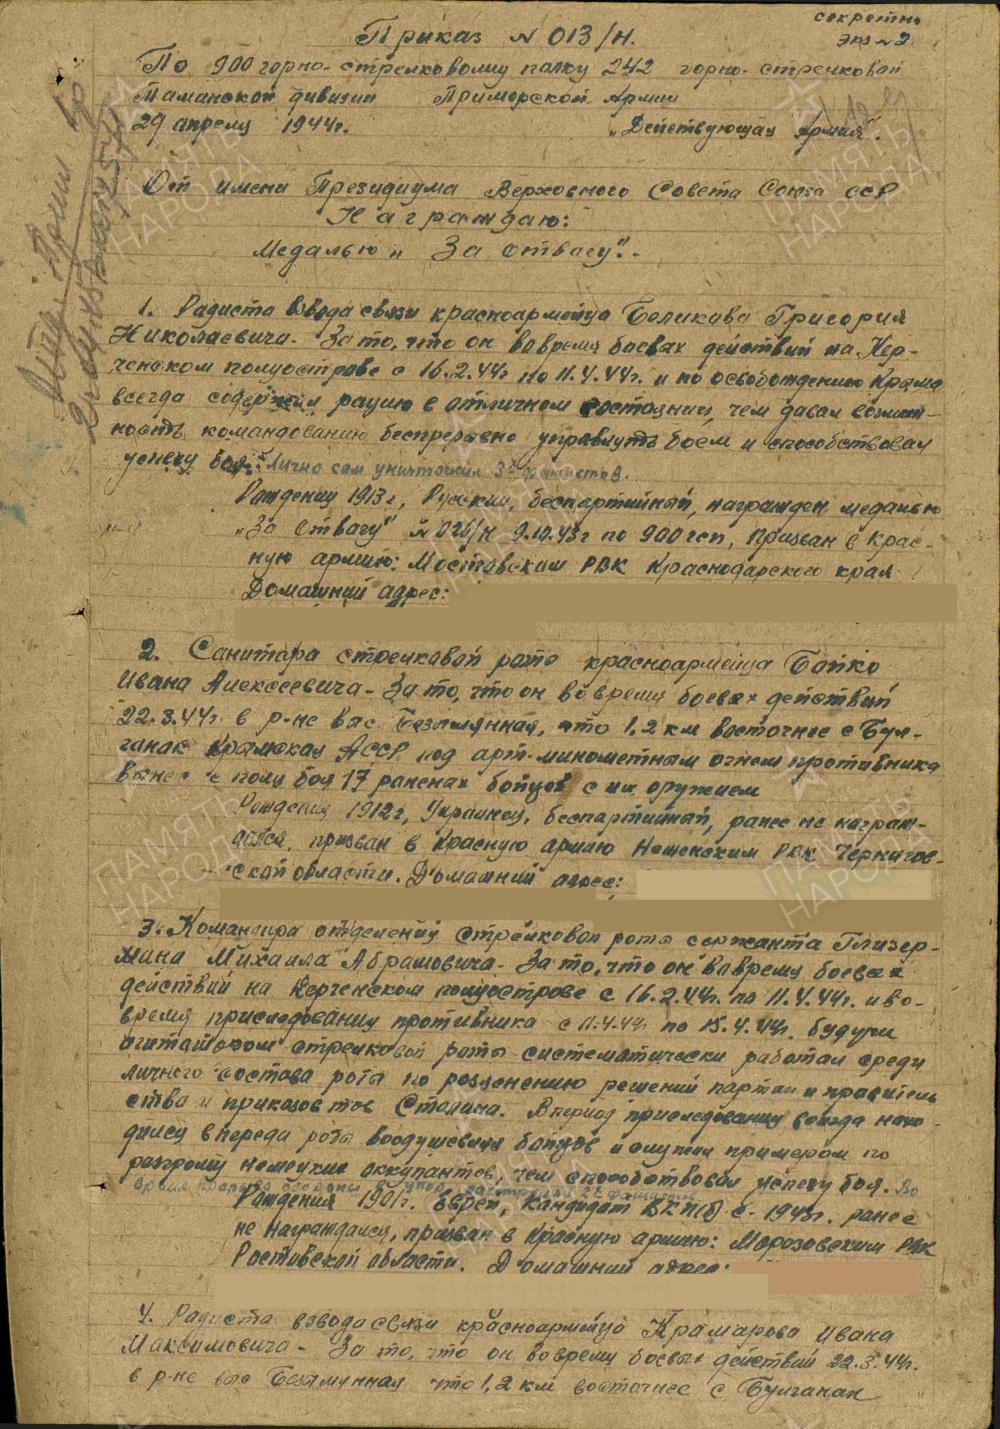 секретно
экз № 2
Приказ № 013/н.
По 900 горно-стрелковому полку 242 горно-стрелковой
Таманской дивизии Приморской Армии
29 апреля 1944г. "Действующая Армия".
От имени Президиума Верховного Совета Союза ССР
Награждаю:
Медалью "За отвагу".-
1. Радиста взвода связи красноармейца Беликова Григория
Николаевича - За то, что он во время боевых действий на Кер-
ченском полуострове с 16.2.44г по 11.4.44г. и по освобождению Крыма
всегда содержал рацию в отличном состоянии, чем давал возмож-
ность командованию беспрерывно управлять боем и способствовал
успеху боя. Лично сам уничтожил 3х фашистов.
Рождения 1913г, Русский, беспартийный, награжден медалью
"За Отвагу" № 026/н 9.10.43г по 900 гсп, призван в Крас-
ную армию: Мостовским РВК Краснодарского края
Домашний адрес:
2. Санитара стрелковой роты красноармейца Бойко
Ивана Алексеевича - За то, что он во время боевых действий
22.3.44г. в р-не выс. Безымянная, что 1,2 км восточнее с Бул-
ганак Крымской АССР под арт-минометным огнем противника
вынес с поля боя 17 раненых бойцов с их оружием
Рождения 1912г, Украинец, беспартийный, ранее не награж-
дался, призван в Красную армию Неженским РВК Чернигов-
ской области. Домашний адрес:
3. Командира отделения стрелковой роты сержанта Глизер-
мана Михаила Абрамовича - За то, что он во время боевых
действий на Керченском полуострове с 16.2.44г. по 11.4.44г. и во-
время приследования противника с 11.4.44г по 15.4.44г. будучи
агитатором стрелковой роты систематически работал среди
личного состава роты по разъяснению решений партии и правитель
ства и приказов тов Сталина. В период приследования всегда нахо-
дился впереди роты воодушевляя бойцов и личным примером по
разгрому немецких оккупантов, чем способствовал успеху боя. Во
время прорыва обороны в упор расстрелял 2х фашистов
Рождения 1901г. Еврей, Кандидат ВКП(б) с 1943г. ранее
не награждался, призван в Красную армию: Морозовским РВК
Ростовской области. Домашний адрес:
4. Радиста взвода связи красноармейца Крамарова Ивана
Максимовича - За то, что он во время боевых действий 22.3.44г.
в р-не выс Безымянная что 1,2 км восточнее с Булганак
ПАМЯТЬ НАРОДА